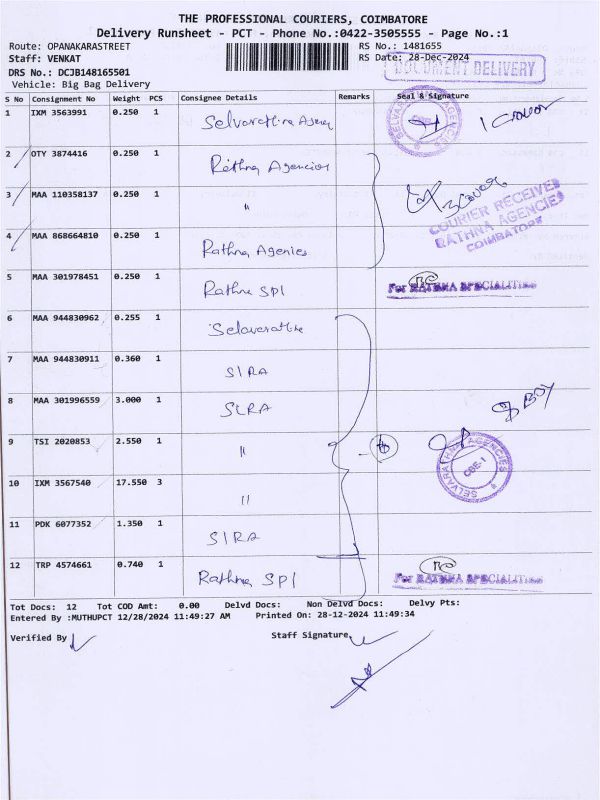 THE PROFESSIONAL COURIERS, COIMBATORE
Delivery Runsheet - PCT - Phone No.:0422-3505555 - Page No.:1
Route: OPANAKARASTREET
RS No.: 1481655
Staff: VENKAT
RS Date: 28-Dec-2024
DOCUMENT DELIVERY
DRS No.: DCJB148165501
Vehicle: Big Bag Delivery
S No Consignment No Weight PCS Consignee Details Remarks Seal & Signature
1 IXM 3563991 0.250 1 Selvarathna Agency
SELVARATHNA AGENCIES CBE-1
1 Cover
2 OTY 3874416 0.250 1 Rathna Agencies
3 MAA 110358137 0.250 1 "
3 Cover
COURIER RECEIVED
RATHNA AGENCIES
COIMBATORE
4 MAA 868664810 0.250 1 Rathna Agencies
5 MAA 301978451 0.250 1 Rathna SPl
For RATHNA SPECIALITIES
6 MAA 944830962 0.255 1 Selavarathna
7 MAA 944830911 0.360 1 SIRA
8 MAA 301996559 3.000 1 SIRA
BOY
9 TSI 2020853 2.550 1 "
SELVARATHNA AGENCIES CBE-1
10 IXM 3567540 17.550 3 "
11 PDK 6077352 1.350 1 SIRA
12 TRP 4574661 0.740 1 Rathna SPl
For RATHNA SPECIALITIES
Tot Docs: 12 Tot COD Amt: 0.00 Delvd Docs: Non Delvd Docs: Delvy Pts:
Entered By :MUTHUPCT 12/28/2024 11:49:27 AM Printed On: 28-12-2024 11:49:34
Verified By
Staff Signature